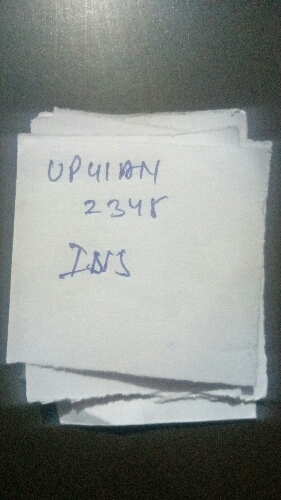 UP41AN
2348
IND